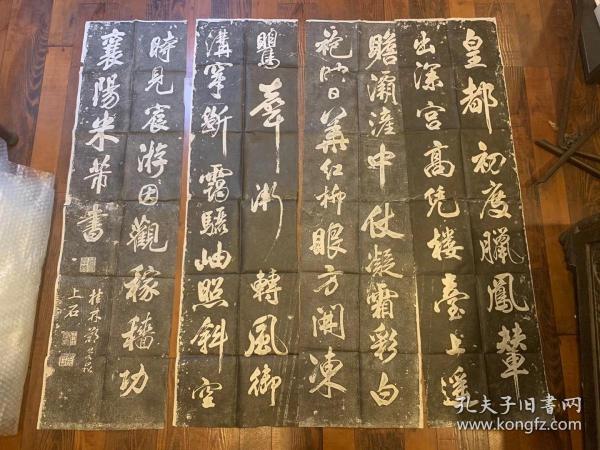 皇都初度臘鳳輦
出深宮高凭樓臺上遥
瞻灞滻中仗凝霜彩白
袍映日華紅柳眼方開凍
鸎聲漸轉風御
溝穿斷靄驪岫照斜空
時見宸游因觀稼穡功
襄陽米芾書
桂林
上石
孔夫子旧書网
www.kongfz.com